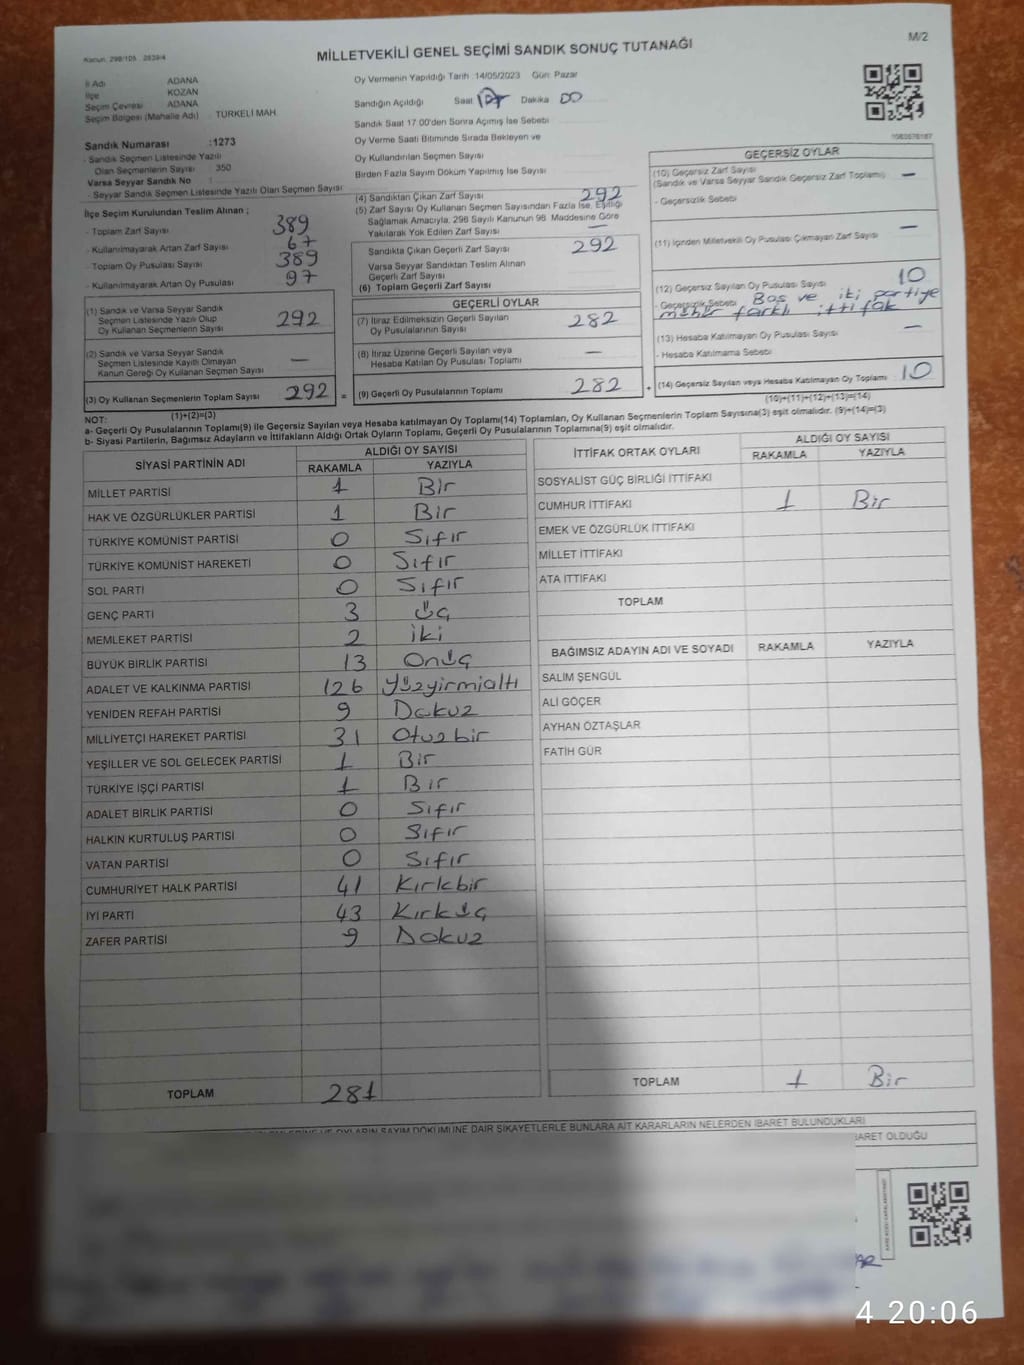 Kanun: 298/105 , 2839/4
MİLLETVEKİLİ GENEL SEÇİMİ SANDIK SONUÇ TUTANAĞI
M/2
İl Adı ADANA
İlçe KOZAN
Seçim Çevresi ADANA
Seçim Bölgesi (Mahalle Adı) : TÜRKELİ MAH.
Sandık Numarası :1273
- Sandık Seçmen Listesinde Yazılı
Olan Seçmenlerin Sayısı : 350
Varsa Seyyar Sandık No :
- Seyyar Sandık Seçmen Listesinde Yazılı Olan Seçmen Sayısı :
İlçe Seçim Kurulundan Teslim Alınan ;
- Toplam Zarf Sayısı 389
- Kullanılmayarak Artan Zarf Sayısı 67
- Toplam Oy Pusulası Sayısı 389
- Kullanılmayarak Artan Oy Pusulası 97
(1) Sandık ve Varsa Seyyar Sandık
Seçmen Listesinde Yazılı Olup
Oy Kullanan Seçmenlerin Sayısı 292
(2) Sandık ve Varsa Seyyar Sandık
Seçmen Listesinde Kayıtlı Olmayan
Kanun Gereği Oy Kullanan Seçmen Sayısı —
(3) Oy Kullanan Seçmenlerin Toplam Sayısı 292 =
(1)+(2)=(3)
Oy Vermenin Yapıldığı Tarih :14/05/2023 Gün: Pazar
Sandığın Açıldığı Saat 17 Dakika 00
Sandık Saat 17:00'den Sonra Açımış İse Sebebi
Oy Verme Saati Bitiminde Sırada Bekleyen ve
Oy Kullandırılan Seçmen Sayısı
Birden Fazla Sayım Döküm Yapılmış İse Sayısı
(4) Sandıktan Çıkan Zarf Sayısı 292
(5) Zarf Sayısı Oy Kullanan Seçmen Sayısından Fazla İse, Eşitliği
Sağlamak Amacıyla, 298 Sayılı Kanunun 98. Maddesine Göre
Yakılarak Yok Edilen Zarf Sayısı —
Sandıkta Çıkan Geçerli Zarf Sayısı 292
Varsa Seyyar Sandıktan Teslim Alınan
Geçerli Zarf Sayısı
(6) Toplam Geçerli Zarf Sayısı
GEÇERLİ OYLAR
(7) İtiraz Edilmeksizin Geçerli Sayılan
Oy Pusulalarının Sayısı 282
(8) İtiraz Üzerine Geçerli Sayılan veya
Hesaba Katılan Oy Pusulası Toplamı —
(9) Geçerli Oy Pusulalarının Toplamı 282 +
1060576187
GEÇERSİZ OYLAR
(10) Geçersiz Zarf Sayısı —
(Sandık ve Varsa Seyyar Sandık Geçersiz Zarf Toplamı)
- Geçersizlik Sebebi
(11) İçinden Milletvekili Oy Pusulası Çıkmayan Zarf Sayısı —
(12) Geçersiz Sayılan Oy Pusulası Sayısı 10
- Geçersizlik Sebebi Boş ve iki partiye
mühür farklı ittifak
(13) Hesaba Katılmayan Oy Pusulası Sayısı —
- Hesaba Katılmama Sebebi
(14) Geçersiz Sayılan veya Hesaba Katılmayan Oy Toplamı 10
(10)+(11)+(12)+(13)=(14)
NOT:
a- Geçerli Oy Pusulalarının Toplamı(9) ile Geçersiz Sayılan veya Hesaba katılmayan Oy Toplamı(14) Toplamları, Oy Kullanan Seçmenlerin Toplam Sayısına(3) eşit olmalıdır. (9)+(14)=(3)
b- Siyasi Partilerin, Bağımsız Adayların ve İttifakların Aldığı Ortak Oyların Toplamı, Geçerli Oy Pusulalarının Toplamına(9) eşit olmalıdır.
SİYASİ PARTİNİN ADI ALDIĞI OY SAYISI
RAKAMLA YAZIYLA
MİLLET PARTİSİ 1 Bir
HAK VE ÖZGÜRLÜKLER PARTİSİ 1 Bir
TÜRKİYE KOMÜNİST PARTİSİ 0 Sıfır
TÜRKİYE KOMÜNİST HAREKETİ 0 Sıfır
SOL PARTİ 0 Sıfır
GENÇ PARTİ 3 Üç
MEMLEKET PARTİSİ 2 iki
BÜYÜK BİRLİK PARTİSİ 13 Onüç
ADALET VE KALKINMA PARTİSİ 126 Yüzyirmialtı
YENİDEN REFAH PARTİSİ 9 Dokuz
MİLLİYETÇİ HAREKET PARTİSİ 31 Otuzbir
YEŞİLLER VE SOL GELECEK PARTİSİ 1 Bir
TÜRKİYE İŞÇİ PARTİSİ 1 Bir
ADALET BİRLİK PARTİSİ 0 Sıfır
HALKIN KURTULUŞ PARTİSİ 0 Sıfır
VATAN PARTİSİ 0 Sıfır
CUMHURİYET HALK PARTİSİ 41 Kırkbir
İYİ PARTİ 43 Kırküç
ZAFER PARTİSİ 9 Dokuz
TOPLAM 281
İTTİFAK ORTAK OYLARI ALDIĞI OY SAYISI
RAKAMLA YAZIYLA
SOSYALİST GÜÇ BİRLİĞİ İTTİFAKI
CUMHUR İTTİFAKI 1 Bir
EMEK VE ÖZGÜRLÜK İTTİFAKI
MİLLET İTTİFAKI
ATA İTTİFAKI
TOPLAM
BAĞIMSIZ ADAYIN ADI VE SOYADI RAKAMLA YAZIYLA
SALİM ŞENGÜL
ALİ GÖÇER
AYHAN ÖZTAŞLAR
FATİH GÜR
TOPLAM 1 Bir
OYLARIN SAYIM DÖKÜMÜNE DAİR ŞİKAYETLERLE BUNLARA AİT KARARLARIN NELERDEN İBARET BULUNDUKLARI
BARET OLDUĞU
4 20:06